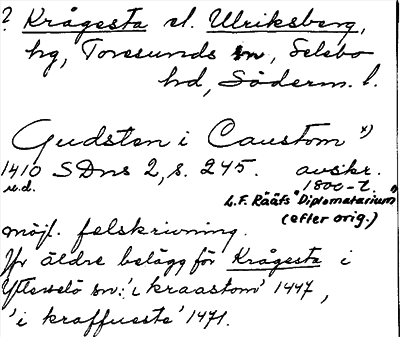 ? Krågesta el. Ulriksberg,
hg, Toresunds sn, Selebo
hd, Söderm. l.
Gudsten i Caustom x)
1410 SDns 2, s. 245. avskr.
u.d. 1800-t.
L.F. Rääfs "Diplomatarium"
(efter orig.)
möjl. felskrivning.
Jfr äldre belägg för Krågesta i
Ytterselö sn: 'i kraastom' 1447,
'i kraffueste' 1471.